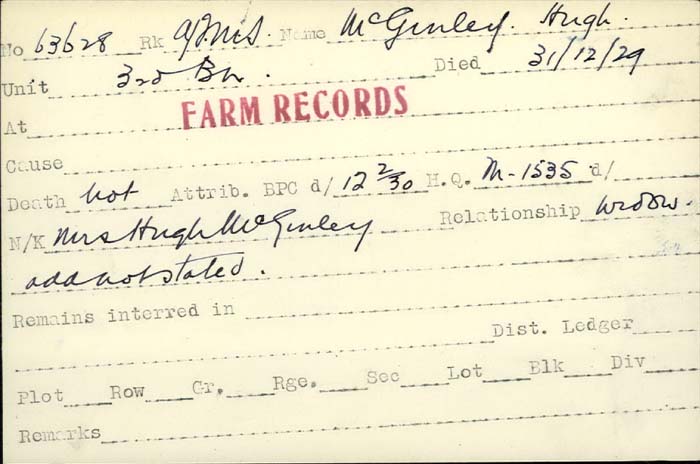 No 63628 Rk A/Sgt. Name McGinley. Hugh.
Unit 3rd Bn. Died 31/12/29
At FARM RECORDS
Cause
Death not Attrib. BPC d/ 12 2/30 H.Q. M-1535 d/
N/K Mrs Hugh McGinley Relationship widow.
add not stated.
Remains interred in
Dist. Ledger
Plot Row Gr. Rge. Sec Lot Blk Div
Remarks